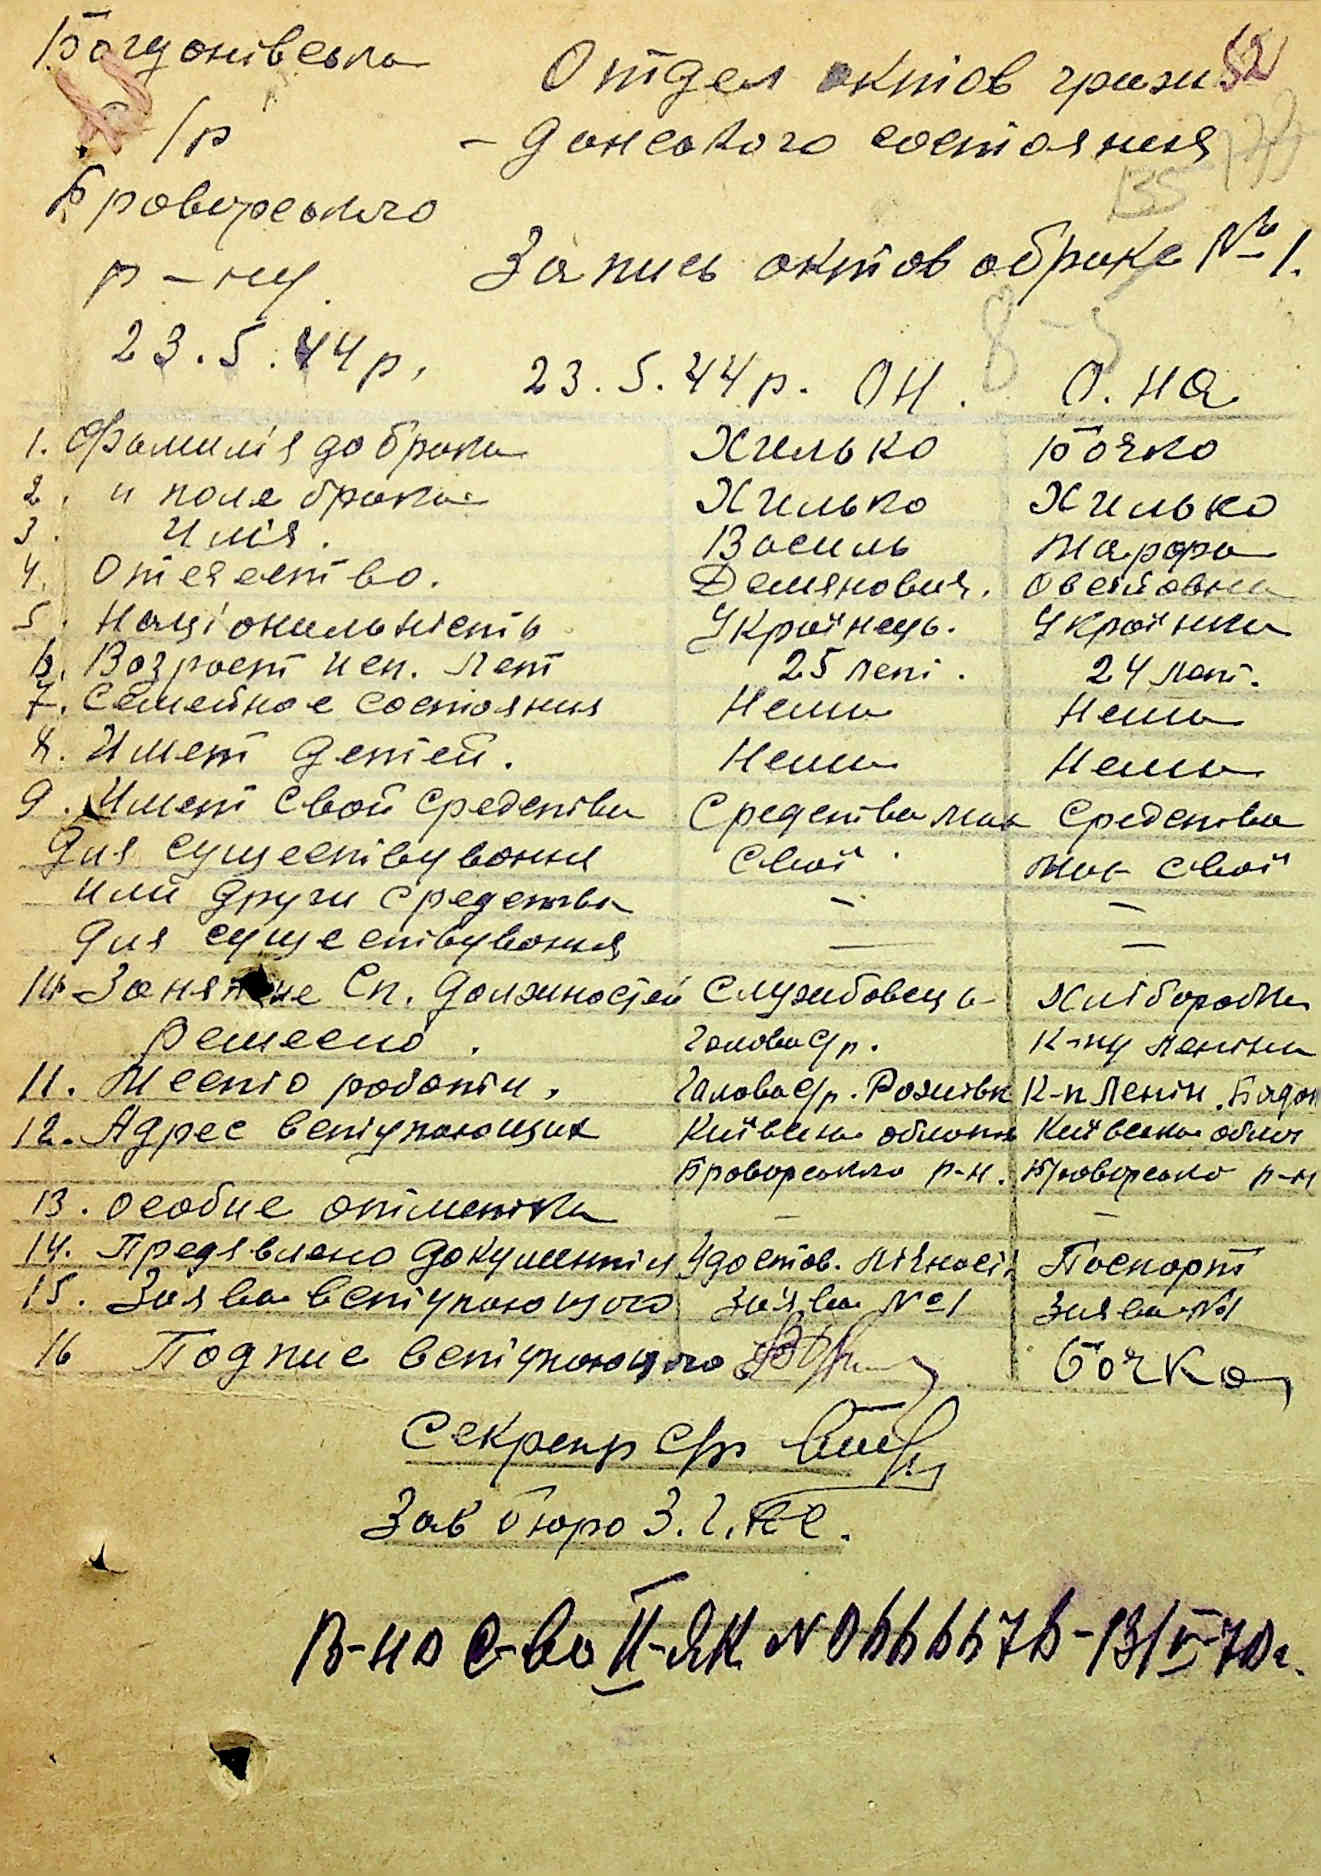 Богданівська
с/р
Броварського
р-ну.
23.5.44 р.
Отдел актов граж
- данского состояния
Запись актов о браке № 1.
23.5.44 р. Он. О.на
1. Фамилія до брака Хилько Бочко
2. и поле брака Хилько Хилько
3. Имія. Василь Марфа
4. Отечество. Демянович. Овсіївна
5. Націонильність Українець. Українка
6. Возраст исп. лет 25 лет. 24 лет.
7. Семейное состояния Нема Нема
8. Имет детей. Нема Нема
9. Имет свой средства Средства має Средства
для существування свої. має свої
или други средства - -
для существування - -
10. Занятие Сп. должностей Службовець Хліборобка
ремесло. голова с/р. К-пу Леніна
11. Место работи. Голова с/р. Рожівк К-п Ленін. Богдан
12. Адрес вступающих Київська область Київська облст
Броварського р-н. Броварсько р-н
13. особие отметки - -
14. Предявлено документи Удостов. лічності Паспорт
15. Заява вступающого Заява №1 Заява №1
16 Подпис вступающого Бочко
Секретр с/р
Зав бюро З.Г.
В-но с-во II-ЯК № 0666676-13/V-70г.